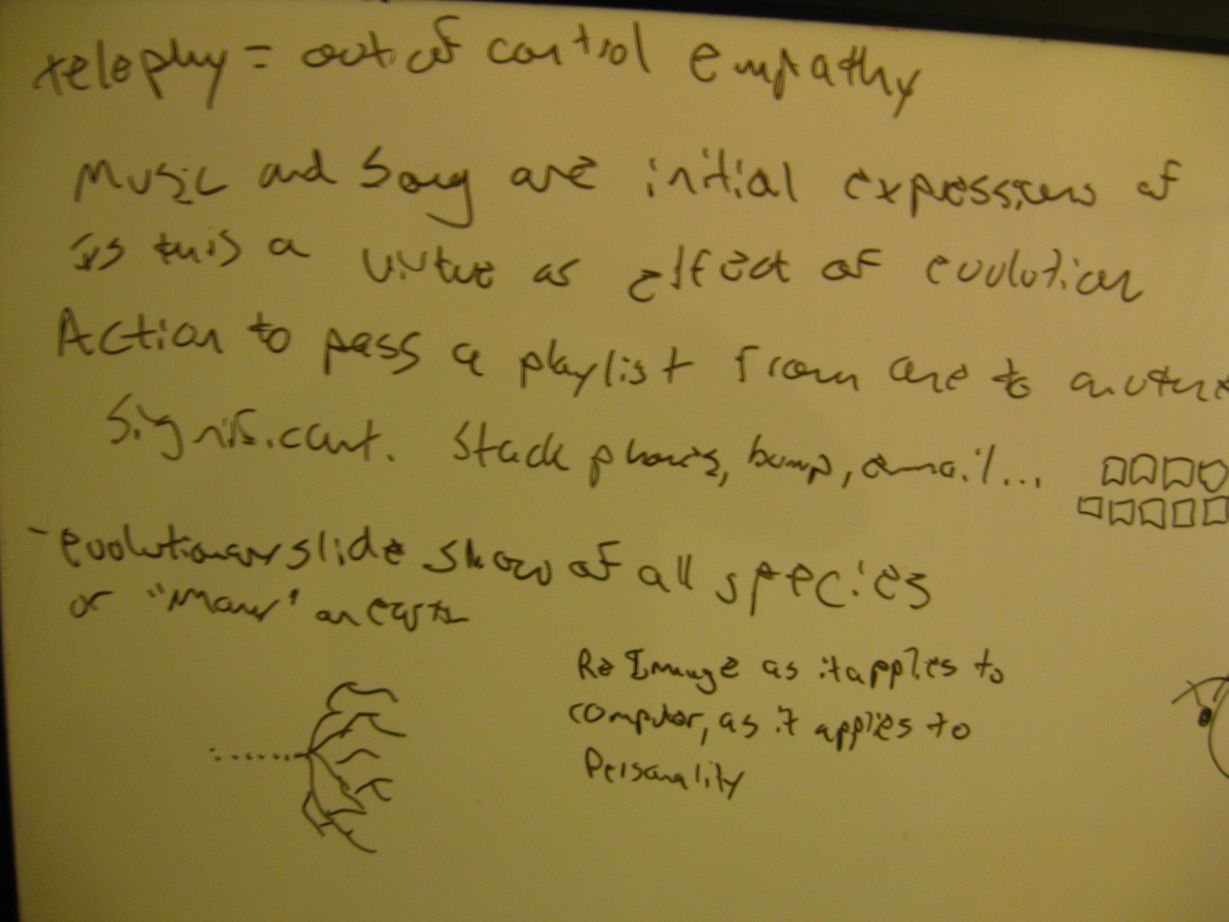 telephy = out of control empathy
Music and Song are initial expressions of
Is this a virtue as effect of evolution
Action to pass a playlist from one to another
Significant. Stack phones, bump, email...
- evolutionary slide show of all species
or "Many" on earth
Re Image as it applies to
computer, as it applies to
Personality